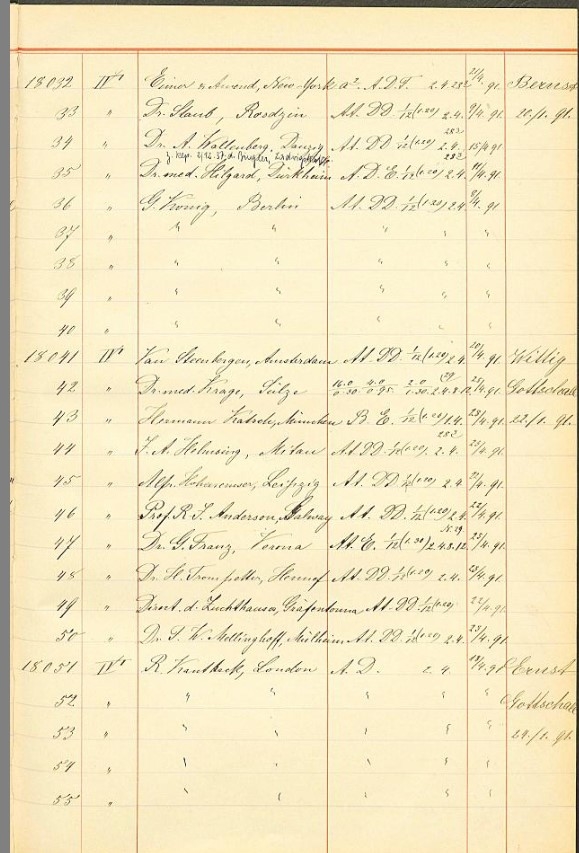 18032 IV¹ Eimer & Amend, New-York a². A.D.F. 2.4. 21/4. 91. Bernst
33 " Dr. Staub, Rosdzin At. DD 1/12 (1.20) 2.4. 9/4. 91. 20./1. 91.
34 " Dr. A. Wallenberg, Danzig At. DD 1/12 (1.20) 2.4. 15/4 91
z. Rep. 2/12.37. d.
35 " Dr. med. Hilgard, Dürkheim A.D.E. 1/12 (1.20) 2.4. 91.
36 " G. König, Berlin At. DD. 1/12 (1.20) 2.4. 9/4. 91
37 " " " " " "
38 " " " " " "
39 " " " " " "
40 " " " " " "
18041 IV¹ Van Steenbergen, Amsterdam At. DD. 1/12 (1.20) 2.4. 20/4. 91. Wittig
42 " Dr. med. Krage, Sülze 2.4.8.12 23/4. 91. Gottschalk
43 " Hermann Katsch, München B. E. 1/12 2.4. 23/4. 91. 22./1. 91.
44 " J. A. Helmsing, Mitau At DD 1/12 (1.20) 2.4. 23/4. 91.
45 " Leipzig At. DD 1/12 (1.20) 2.4. 22/4. 91.
46 " Prof. R. J. Anderson, Galway At. DD. 1/12 (1.20) 2.4. 22/4. 91.
47 " Dr. G. Franz, Verona At. E. 1/12 (1.30) 2.4.8.12. 23/4. 91.
48 " Dr. H. Trompetter, Hennef At DD 1/12 (1.20) 2.4. 23/4. 91.
49 " Direct. d. Zuchthauses, Gräfentonna At. DD 1/12 (1.20) 22/4. 91.
50 " Dr. Mellinghoff, Mülheim At. DD. 1/12 (1.20) 2.4. 23/4. 91.
18051 IV¹ R. Kanthack, London A. D. 2.4. 18/4. 91 Ernst
52 " " " " " " Gottschalk
53 " " " " " " 24./1. 91.
54 " " " " " "
55 " " " " " "